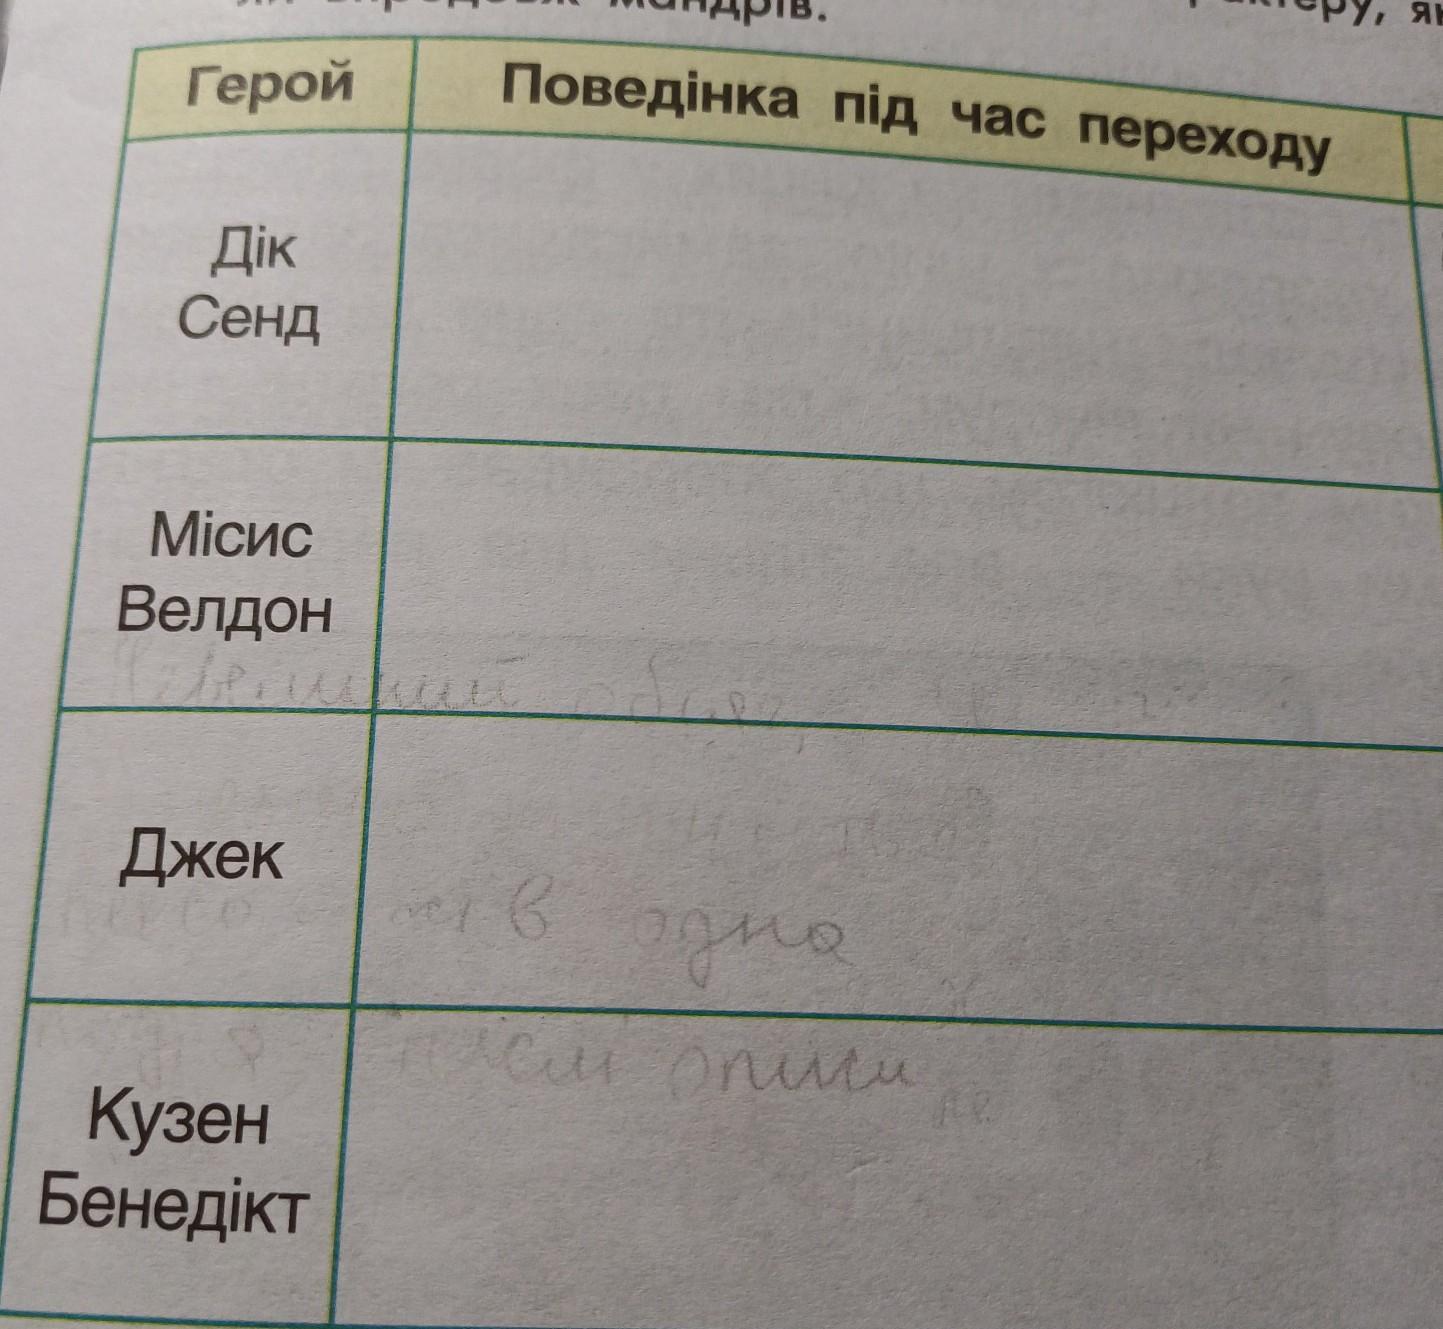 мандрів.
Герой
Поведінка під час переходу
Дік
Сенд
Місис
Велдон
Джек
в одна
Кузен
Бенедікт